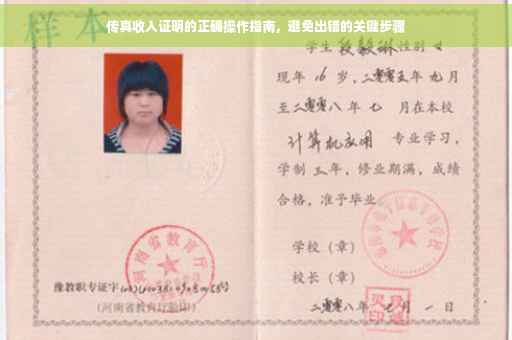 传真收入证明的正确操作指南，避免出错的关键步骤
样本
学生 段毅琳 性别 女
现年 16 岁，二零零五年 九 月
至二零零八年 七 月在本校
计算机应用 专业学习，
学制 三 年，修业期满，成绩
合格，准予毕业
学校（章）
校长（章）
二零零八年 月 一 日
河南省教育厅
豫教职专证字
（河南省教育厅验印）